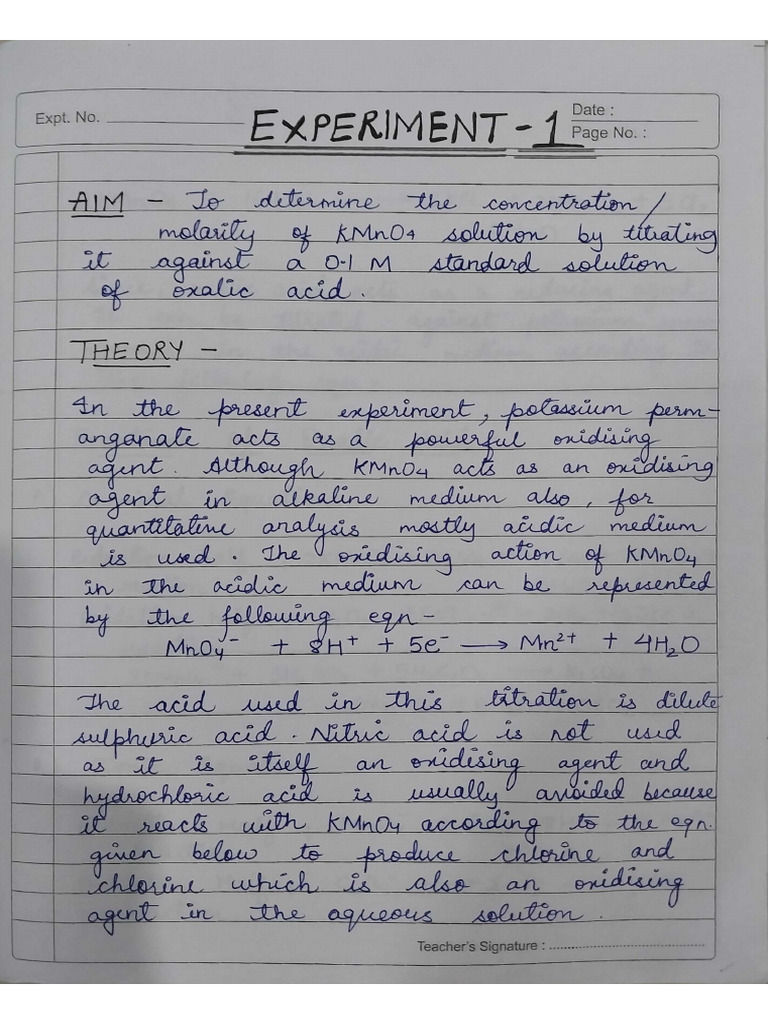 Expt. No.
EXPERIMENT - 1
Date :
Page No. :
AIM - To determine the concentration/
molarity of KMnO4 solution by titrating
it against a 0.1 M standard solution
of oxalic acid.
THEORY -
In the present experiment, potassium perm-
anganate acts as a powerful oxidising
agent. Although KMnO4 acts as an oxidising
agent in alkaline medium also, for
quantitative analysis mostly acidic medium
is used. The oxidising action of KMnO4
in the acidic medium can be represented
by the following eqn -
MnO4⁻ + 8H⁺ + 5e⁻ ⟶ Mn²⁺ + 4H₂O
The acid used in this titration is dilute
sulphuric acid. Nitric acid is not used
as it is itself an oxidising agent and
hydrochloric acid is usually avoided because
it reacts with KMnO4 according to the eqn.
given below to produce chlorine and
chlorine which is also an oxidising
agent in the aqueous solution.
Teacher's Signature :